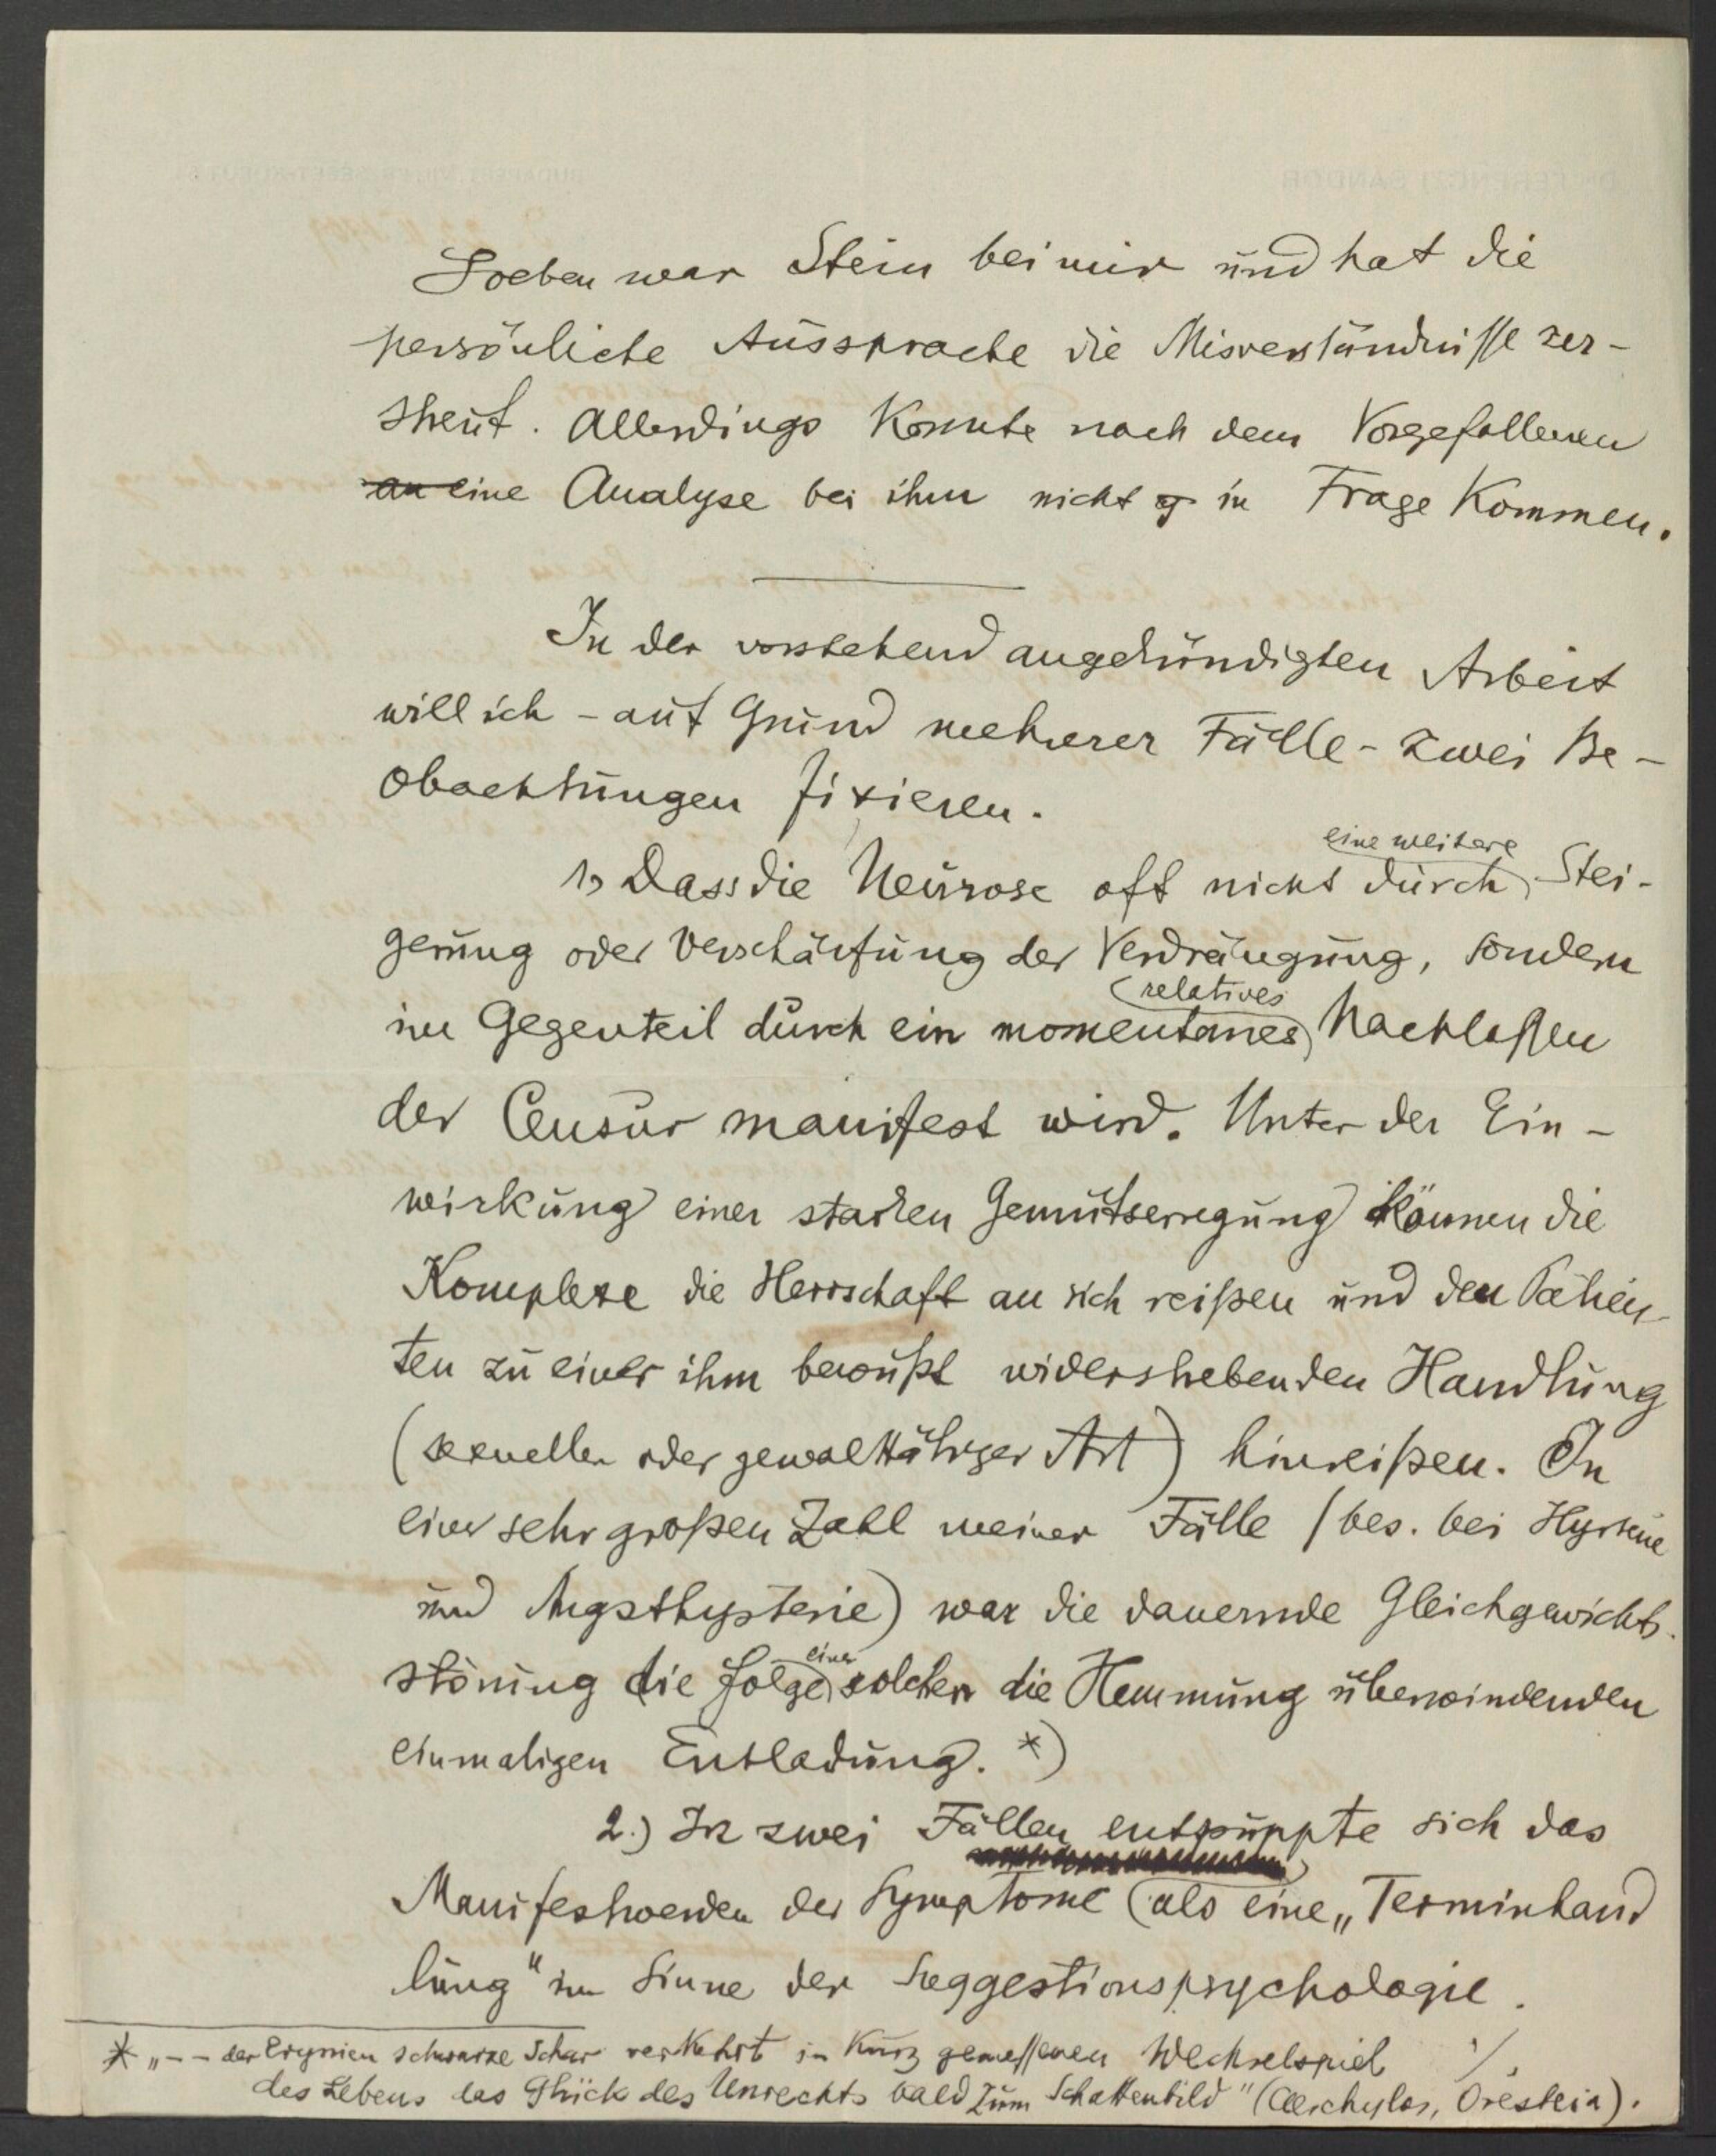 Soeben war Stein bei mir und hat die
persönliche Aussprache die Misverständnisse zer-
streut. Allerdings konnte nach dem Vorgefallenen
an eine Analyse bei ihm nicht in Frage kommen.
In der vorstehend angekündigten Arbeit
will ich - auf Grund mehrerer Fälle - zwei Be-
obachtungen fixieren.
1) Dass die Neurose oft nicht durch eine weitere Stei-
gerung oder Verschärfung der Verdrängung, sondern
im Gegenteil durch ein momentanes relatives Nachlassen
der Censur manifest wird. Unter der Ein-
wirkung einer starken Gemütserregung können die
Komplexe die Herrschaft an sich reißen und den Patien-
ten zu einer ihm bewußt widerstrebenden Handlung
(sexueller oder gewalttätiger Art) hinreißen. In
einer sehr großen Zahl meiner Fälle (bes. bei Hysterie
und Angsthysterie) war die dauernde Gleichgewichts-
störung die Folge einer solchen die Hemmung überwindenden
einmaligen Entladung. *)
2.) In zwei Fällen entpuppte sich das
Manifestwerden der Symptome als eine „Terminhand
lung" im Sinne der Suggestionspsychologie.
* „-- der Erynien schwarze Schar verkehrt in kurz gemessenen Wechselspiel ./.
des Lebens das Glück des Unrechts bald zum Schattenbild" (Aeschylos, Oresteia).